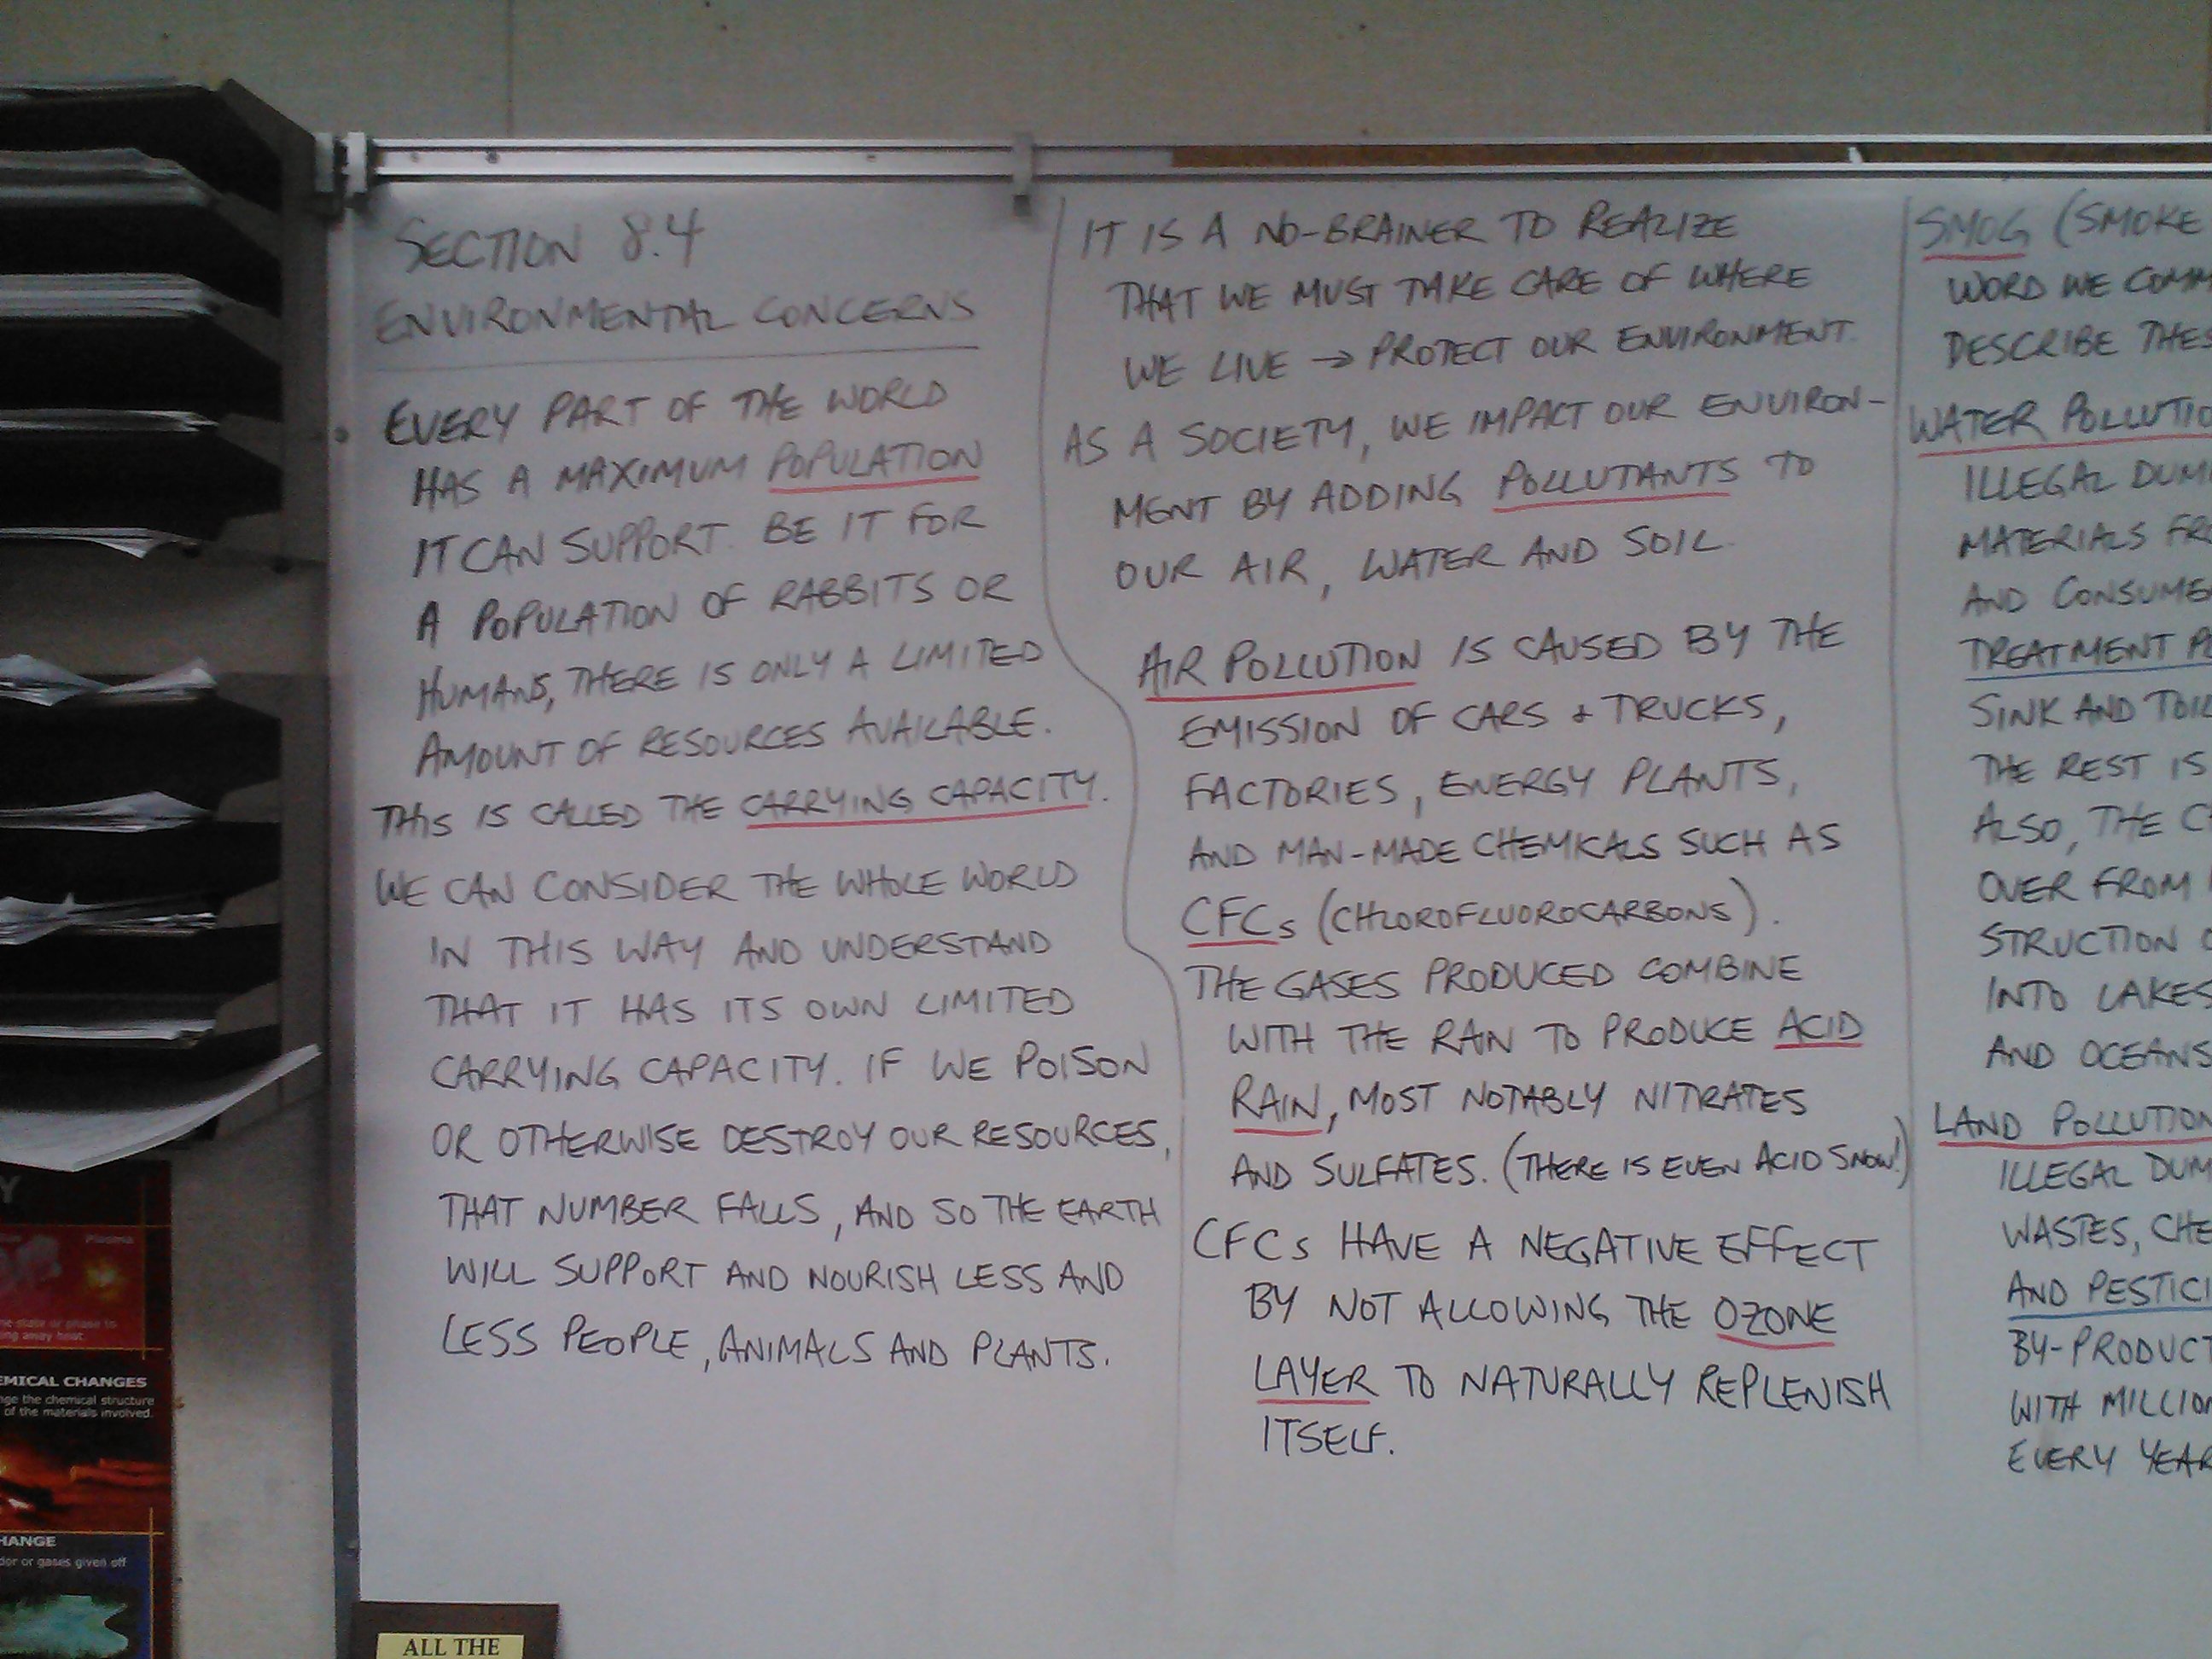 SECTION 8.4
ENVIRONMENTAL CONCERNS
EVERY PART OF THE WORLD
HAS A MAXIMUM POPULATION
IT CAN SUPPORT. BE IT FOR
A POPULATION OF RABBITS OR
HUMANS, THERE IS ONLY A LIMITED
AMOUNT OF RESOURCES AVAILABLE.
THIS IS CALLED THE CARRYING CAPACITY.
WE CAN CONSIDER THE WHOLE WORLD
IN THIS WAY AND UNDERSTAND
THAT IT HAS ITS OWN LIMITED
CARRYING CAPACITY. IF WE POISON
OR OTHERWISE DESTROY OUR RESOURCES,
THAT NUMBER FALLS, AND SO THE EARTH
WILL SUPPORT AND NOURISH LESS AND
LESS PEOPLE, ANIMALS AND PLANTS.
IT IS A NO-BRAINER TO REALIZE
THAT WE MUST TAKE CARE OF WHERE
WE LIVE → PROTECT OUR ENVIRONMENT.
AS A SOCIETY, WE IMPACT OUR ENVIRON-
MENT BY ADDING POLLUTANTS TO
OUR AIR, WATER AND SOIL.
AIR POLLUTION IS CAUSED BY THE
EMISSION OF CARS + TRUCKS,
FACTORIES, ENERGY PLANTS,
AND MAN-MADE CHEMICALS SUCH AS
CFCs (CHLOROFLUOROCARBONS).
THE GASES PRODUCED COMBINE
WITH THE RAIN TO PRODUCE ACID
RAIN, MOST NOTABLY NITRATES
AND SULFATES. (THERE IS EVEN ACID SNOW!)
CFCs HAVE A NEGATIVE EFFECT
BY NOT ALLOWING THE OZONE
LAYER TO NATURALLY REPLENISH
ITSELF.
SMOG (SMOKE
WORD WE COMM
DESCRIBE THES
WATER POLLUTIO
ILLEGAL DUM
MATERIALS FR
AND CONSUME
TREATMENT P
SINK AND TOIL
THE REST IS
ALSO, THE C
OVER FROM
STRUCTION
INTO LAKES
AND OCEANS
LAND POLLUTION
ILLEGAL DUM
WASTES, CHE
AND PESTICI
BY-PRODUCT
WITH MILLION
EVERY YEAR
Y
Plasma
ne state or phase to
ing away heat.
EMICAL CHANGES
nge the chemical structure
of the materials involved.
HANGE
dor or gases given off
ALL THE